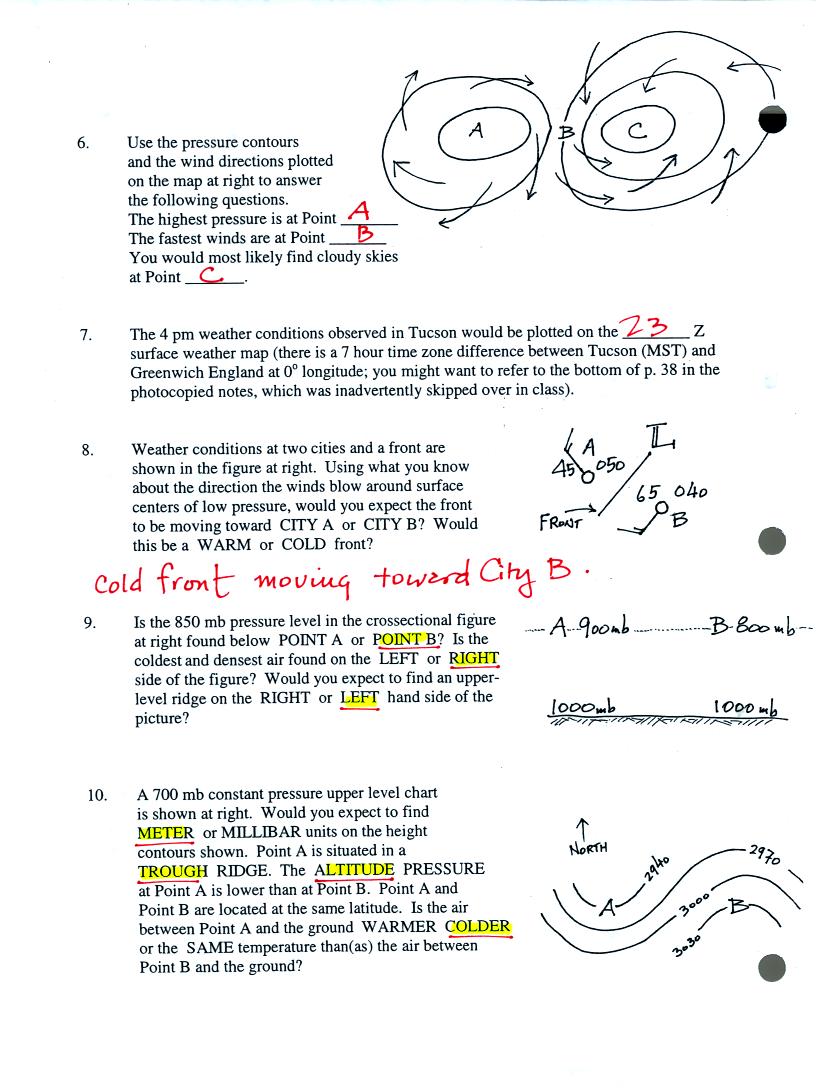 A
B
C
6. Use the pressure contours
and the wind directions plotted
on the map at right to answer
the following questions.
The highest pressure is at Point A
The fastest winds are at Point B
You would most likely find cloudy skies
at Point C.
7. The 4 pm weather conditions observed in Tucson would be plotted on the 23 Z
surface weather map (there is a 7 hour time zone difference between Tucson (MST) and
Greenwich England at 0° longitude; you might want to refer to the bottom of p. 38 in the
photocopied notes, which was inadvertently skipped over in class).
8. Weather conditions at two cities and a front are
shown in the figure at right. Using what you know
about the direction the winds blow around surface
centers of low pressure, would you expect the front
to be moving toward CITY A or CITY B? Would
this be a WARM or COLD front?
A
L
45 050
65 040
FRONT
B
Cold front moving toward City B.
9. Is the 850 mb pressure level in the crossectional figure
at right found below POINT A or POINT B? Is the
coldest and densest air found on the LEFT or RIGHT
side of the figure? Would you expect to find an upper-
level ridge on the RIGHT or LEFT hand side of the
picture?
A 900mb B 800mb
1000mb 1000mb
10. A 700 mb constant pressure upper level chart
is shown at right. Would you expect to find
METER or MILLIBAR units on the height
contours shown. Point A is situated in a
TROUGH RIDGE. The ALTITUDE PRESSURE
at Point A is lower than at Point B. Point A and
Point B are located at the same latitude. Is the air
between Point A and the ground WARMER COLDER
or the SAME temperature than(as) the air between
Point B and the ground?
NORTH
2940
2970
A
3000
B
3030